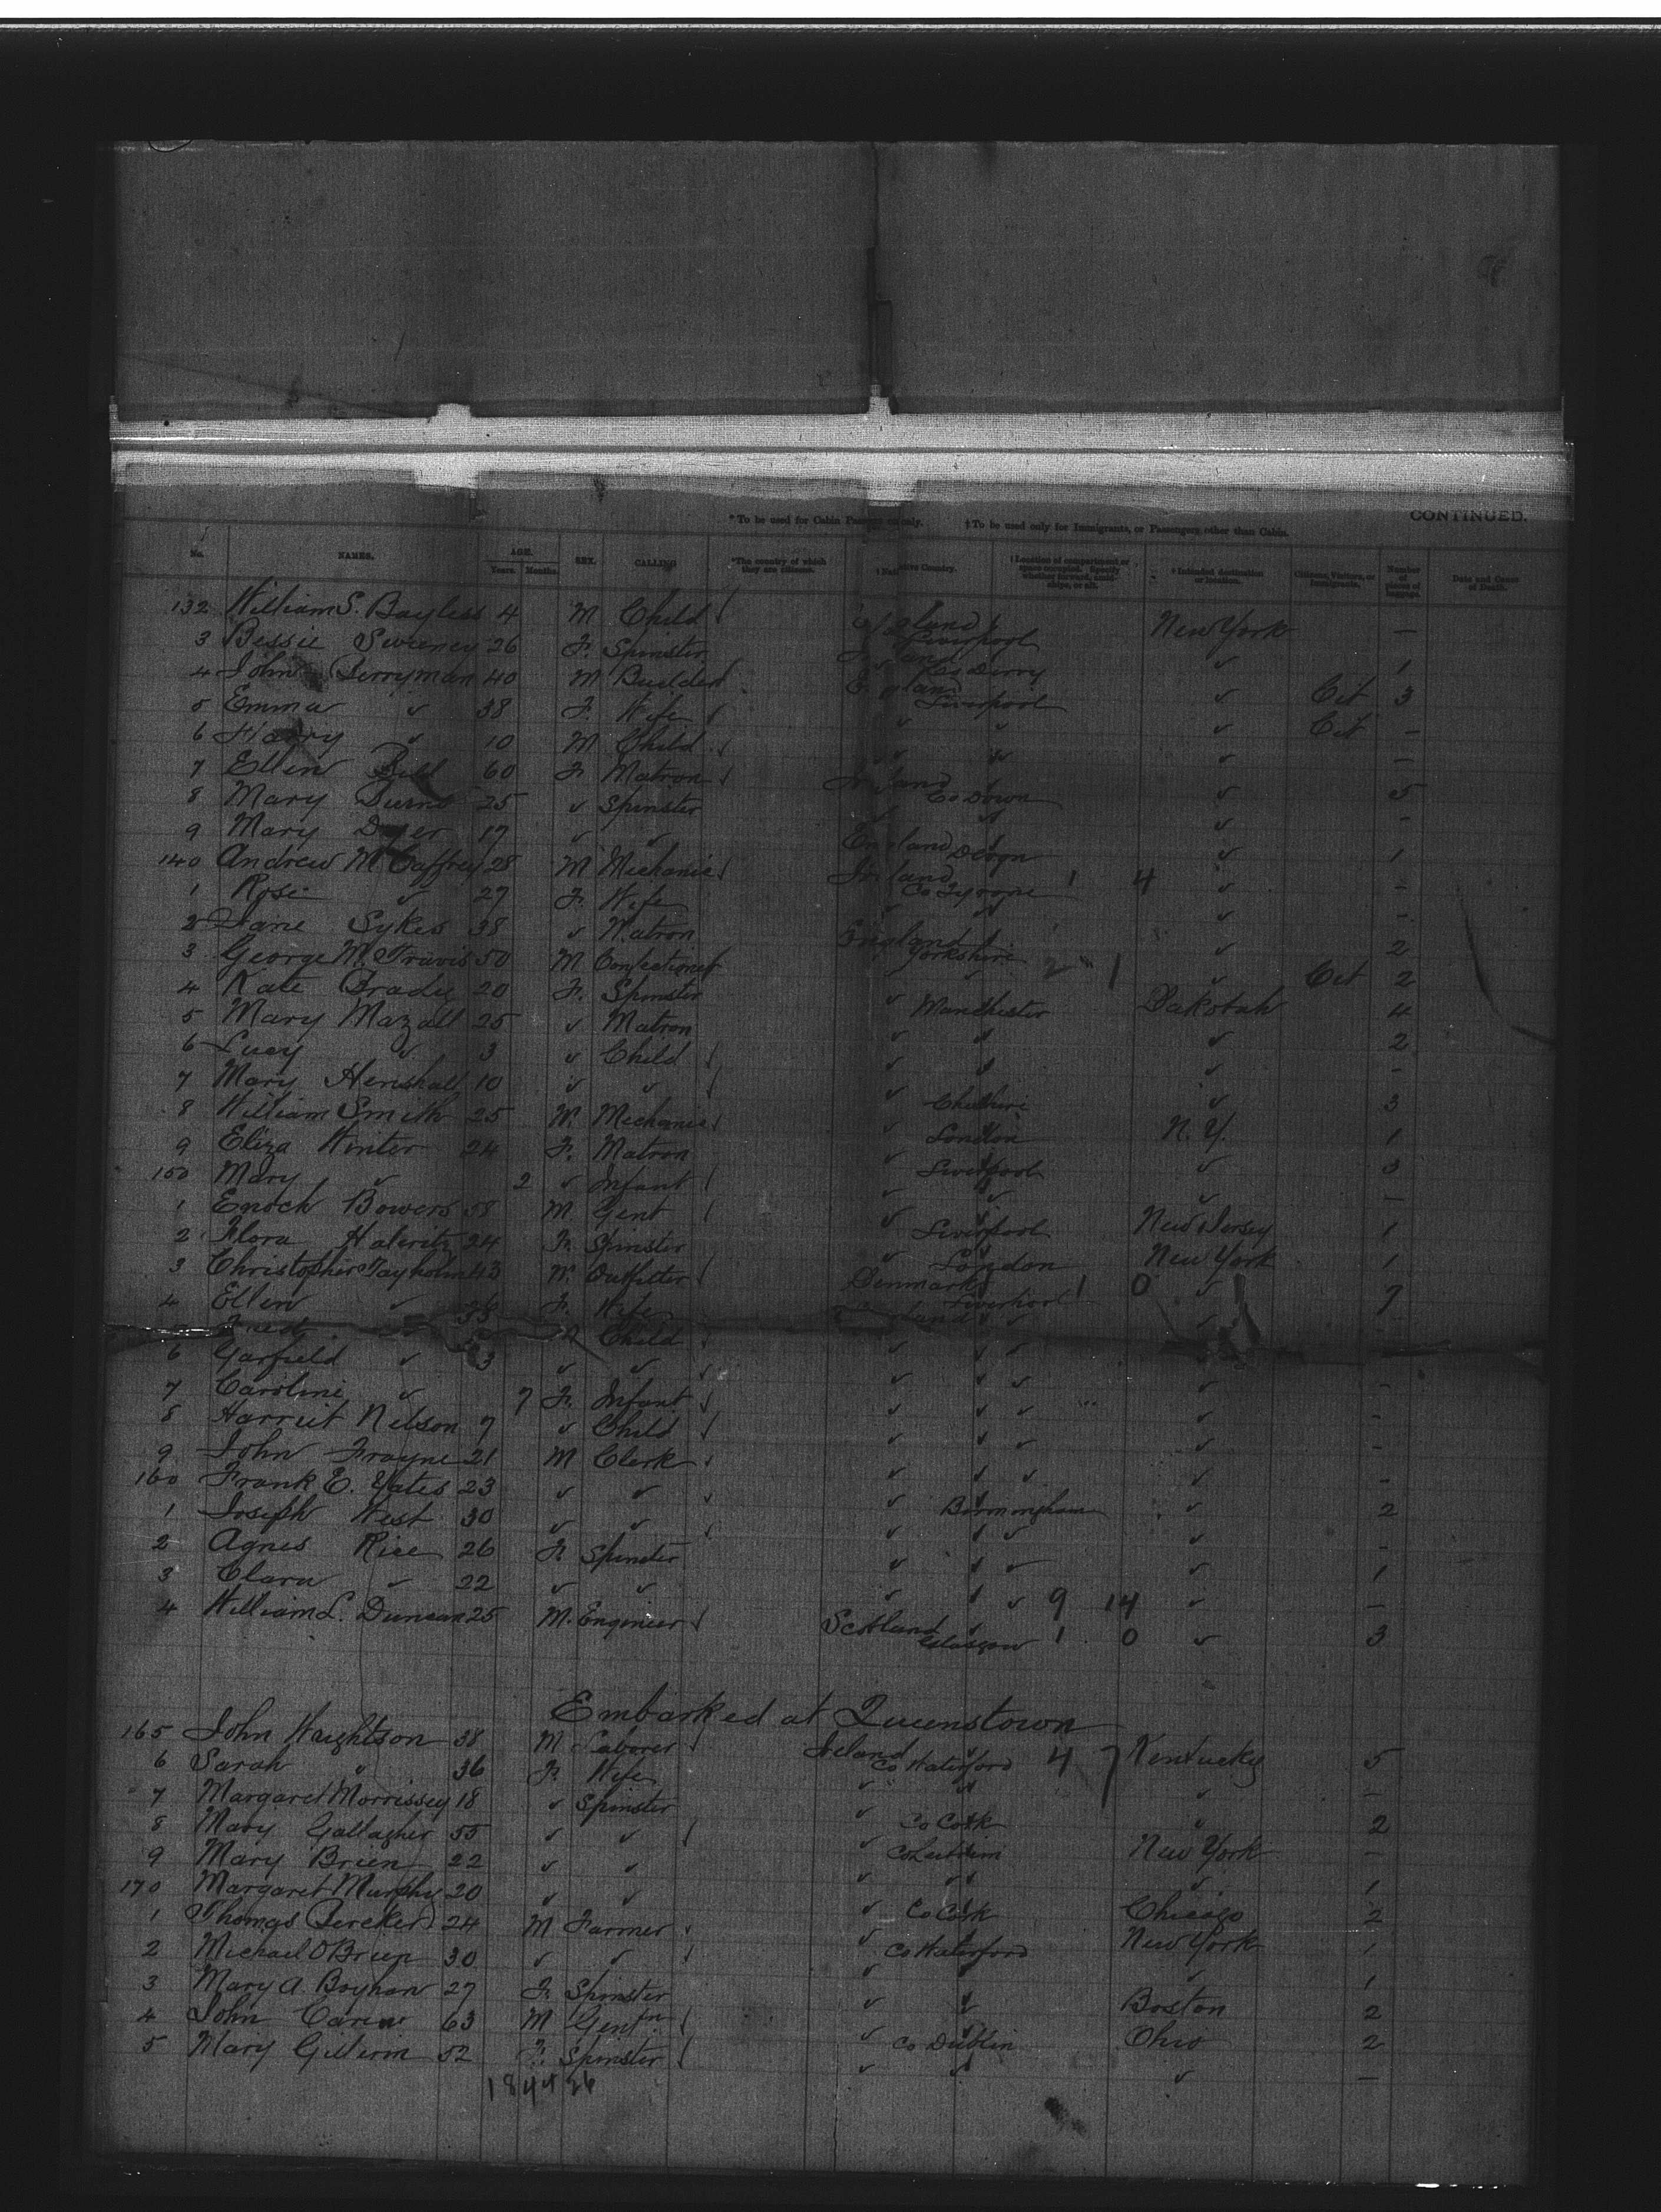 CONTINUED.
* To be used for Cabin Passengers only. † To be used only for Immigrants, or Passengers other than Cabin.
No. NAMES. AGE. Years. Months. SEX. CALLING *The country of which they are citizens. † Native Country. † Location of compartment or space occupied. Specify whether forward, amidships, or aft. † Intended destination or location. Citizens, Visitors, or Immigrants. Number of pieces of baggage. Date and Cause of Death.
132 William S. Bayless 4 M Child England Liverpool New York —
3 Bessie Sweeney 26 F. Spinster Ireland Co Derry ✓ 1
4 John Perryman 40 M Builder England Liverpool ✓ Cit 3
5 Emma ✓ 38 F. Wife ✓ ✓ ✓ Cit —
6 Harry ✓ 10 M Child ✓ ✓ ✓ —
7 Ellen Bell 60 F. Matron Ireland Co Down ✓ 5
8 Mary Burns 25 ✓ Spinster ✓ ✓ ✓ —
9 Mary Dyer 17 ✓ ✓ England Devon ✓ 1
140 Andrew McCaffrey 28 M Mechanic Ireland Co Tyrone 1 4 ✓ —
1 Rose ✓ 27 F. Wife ✓ ✓ ✓ —
2 Jane Sykes 38 ✓ Matron England Yorkshire ✓ 2
3 George M. Travis 50 M Confectioner ✓ 2 1 ✓ Cit 2
4 Kate Brady 20 F. Spinster ✓ Manchester Dakotah 4
5 Mary Mazall 25 ✓ Matron ✓ ✓ ✓ 2
6 Lucy ✓ 3 ✓ Child ✓ ✓ ✓ —
7 Mary Henshall 10 ✓ ✓ ✓ Cheshire ✓ 3
8 William Smith 25 M. Mechanic ✓ London N.Y. 1
9 Eliza Winter 24 F. Matron ✓ Liverpool ✓ 3
150 Mary ✓ 2 ✓ Infant ✓ ✓ ✓ —
1 Enoch Bowers 58 M Gent ✓ Liverpool New Jersey 1
2 Flora 24 F. Spinster ✓ London New York 1
3 Christopher 43 M. Outfitter Denmark Liverpool 1 0 ✓ 7
4 Ellen ✓ 36 F. Wife England ✓ ✓ —
Fred ✓ 5 Child ✓ ✓ ✓
6 Garfield ✓ 3 ✓ ✓ ✓ ✓ ✓ —
7 Caroline ✓ 7 F. Infant ✓ ✓ ✓ —
8 Harriet Nelson 7 ✓ Child ✓ ✓ ✓ —
9 John Frayne 21 M Clerk ✓ ✓ ✓ —
160 Frank E. Yates 23 ✓ ✓ ✓ Birmingham ✓ 2
1 Joseph West 30 ✓ ✓ ✓ ✓ ✓ —
2 Agnes Rice 26 F. Spinster ✓ ✓ ✓ 1
3 Clara ✓ 22 ✓ ✓ ✓ ✓ 9 14 ✓ —
4 William L. Duncan 25 M. Engineer Scotland Glasgow 1 0 ✓ 3
Embarked at Queenstown
165 John Wrightson 38 M Laborer Ireland Co Waterford 4 7 Kentucky 5
6 Sarah " 36 F. Wife ✓ ✓ ✓ —
7 Margaret Morrissey 18 ✓ Spinster ✓ Co Cork ✓ 2
8 Mary Gallagher 55 ✓ ✓ ✓ Co Leitrim New York —
9 Mary Brien 22 ✓ ✓ ✓ ✓ ✓ 1
170 Margaret Murphy 20 ✓ ✓ ✓ Co Cork Chicago 2
1 Thomas 24 M Farmer ✓ Co Waterford New York 1
2 Michael O'Brien 30 ✓ ✓ ✓ ✓ ✓ 1
3 Mary A. Boyhan 27 F. Spinster ✓ ✓ Boston 2
4 John Carew 63 M Gentn ✓ Co Dublin Ohio 2
5 Mary 52 F. Spinster ✓ ✓ ✓ —